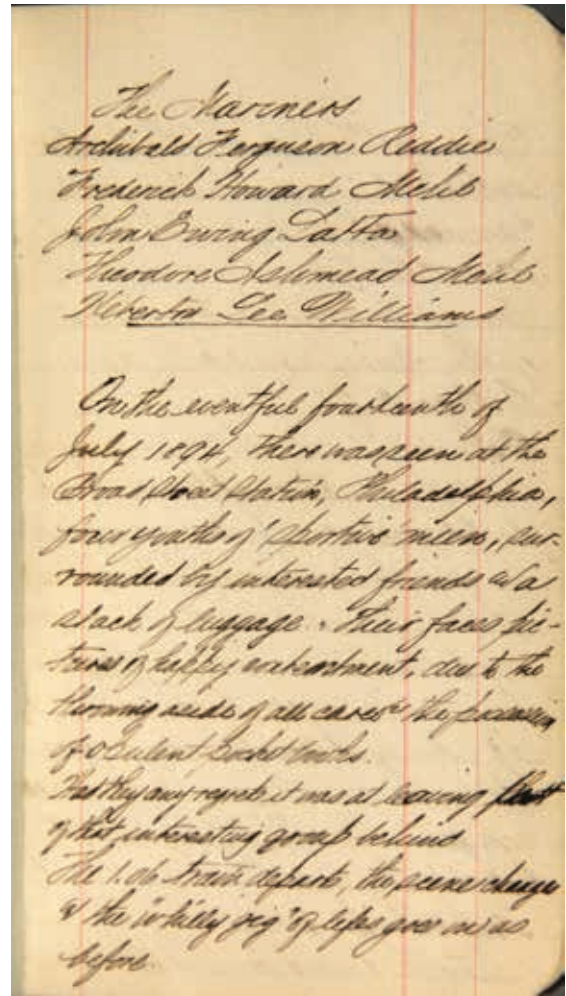 The Mariners
Archibald Ferguson Reddie
Frederick Howard Mehl
John Ewing Latta
Theodore Ashmead Mehl
Lee Williams
On the eventful fourteenth of
July 1894, there was seen at the
Broad Street Station, Philadelphia,
four youths of "sportive" mien, sur-
rounded by interested friends & a
stack of luggage. Their faces pic-
tures of happy contentment, due to the
throwing aside of all cares & the possession
of opulent pocket books.
Had they any regrets it was at leaving part
of that interesting group behind
The 1.06 train departs, the scene changes
& the "whirly gig" of life goes on as
before.